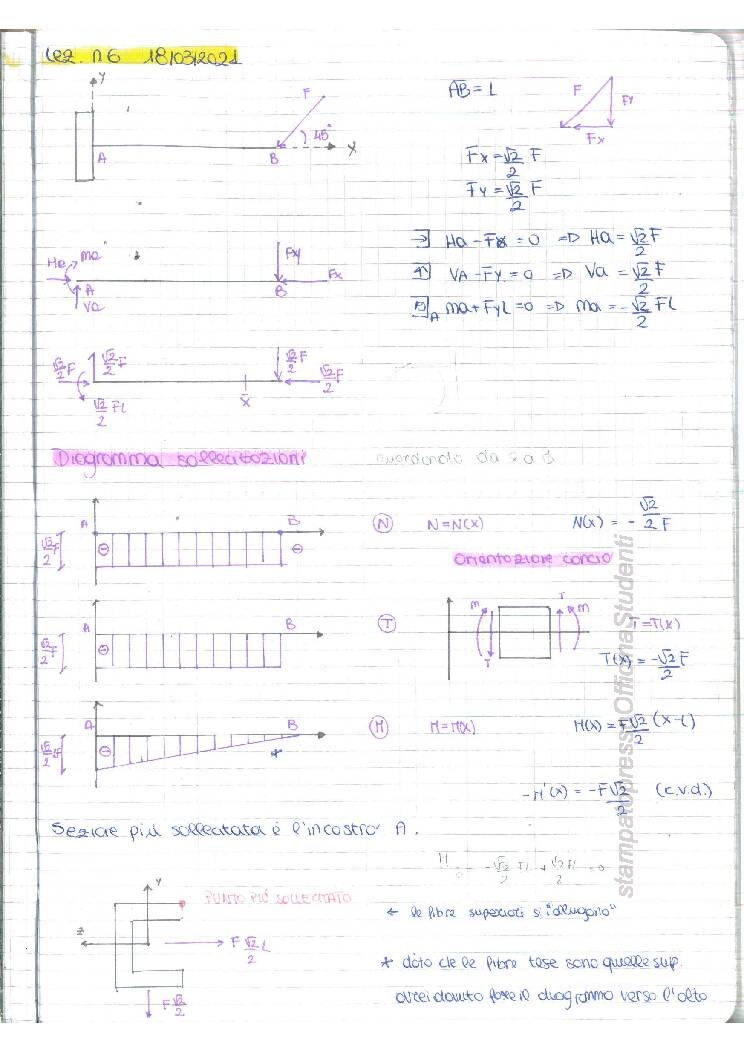 Lez. n 6 18/03/2021
y
F
45°
A
B
x
AB = L
F
Fy
Fx
Fx = √2/2 F
Fy = √2/2 F
Ha
ma
A
Va
Fy
B
Fx
Ha - Fx = 0 => Ha = √2/2 F
VA - Fy = 0 => Va = √2/2 F
A ma + FyL = 0 => ma = -√2/2 FL
√2/2 F
√2/2 F
√2/2 FL
x̄
√2/2 F
√2/2 F
Diagramma sollecitazioni
guardando da
A
B
√2/2 F
⊖
⊖
N
N = N(x)
N(x) = - √2/2 F
Orientazione concio
A
B
√2/2 F
⊖
T
m
T
T
m
T = T(x)
T(x) = -√2/2 F
A
B
√2/2 FL
⊖
*
M
M = M(x)
M(x) = F√2/2 (x-L)
-M'(x) = -F√2/2 (c.v.d.)
Sezione più sollecitata è l'incastro A.
y
z
PUNTO PIÙ SOLLECITATO
F √2/2 L
F √2/2
← le fibre superiori si "allungano"
* dato che le fibre tese sono quelle sup.
avrei dovuto fare il diagramma verso l'alto
stampatopressoOfficinaStudenti